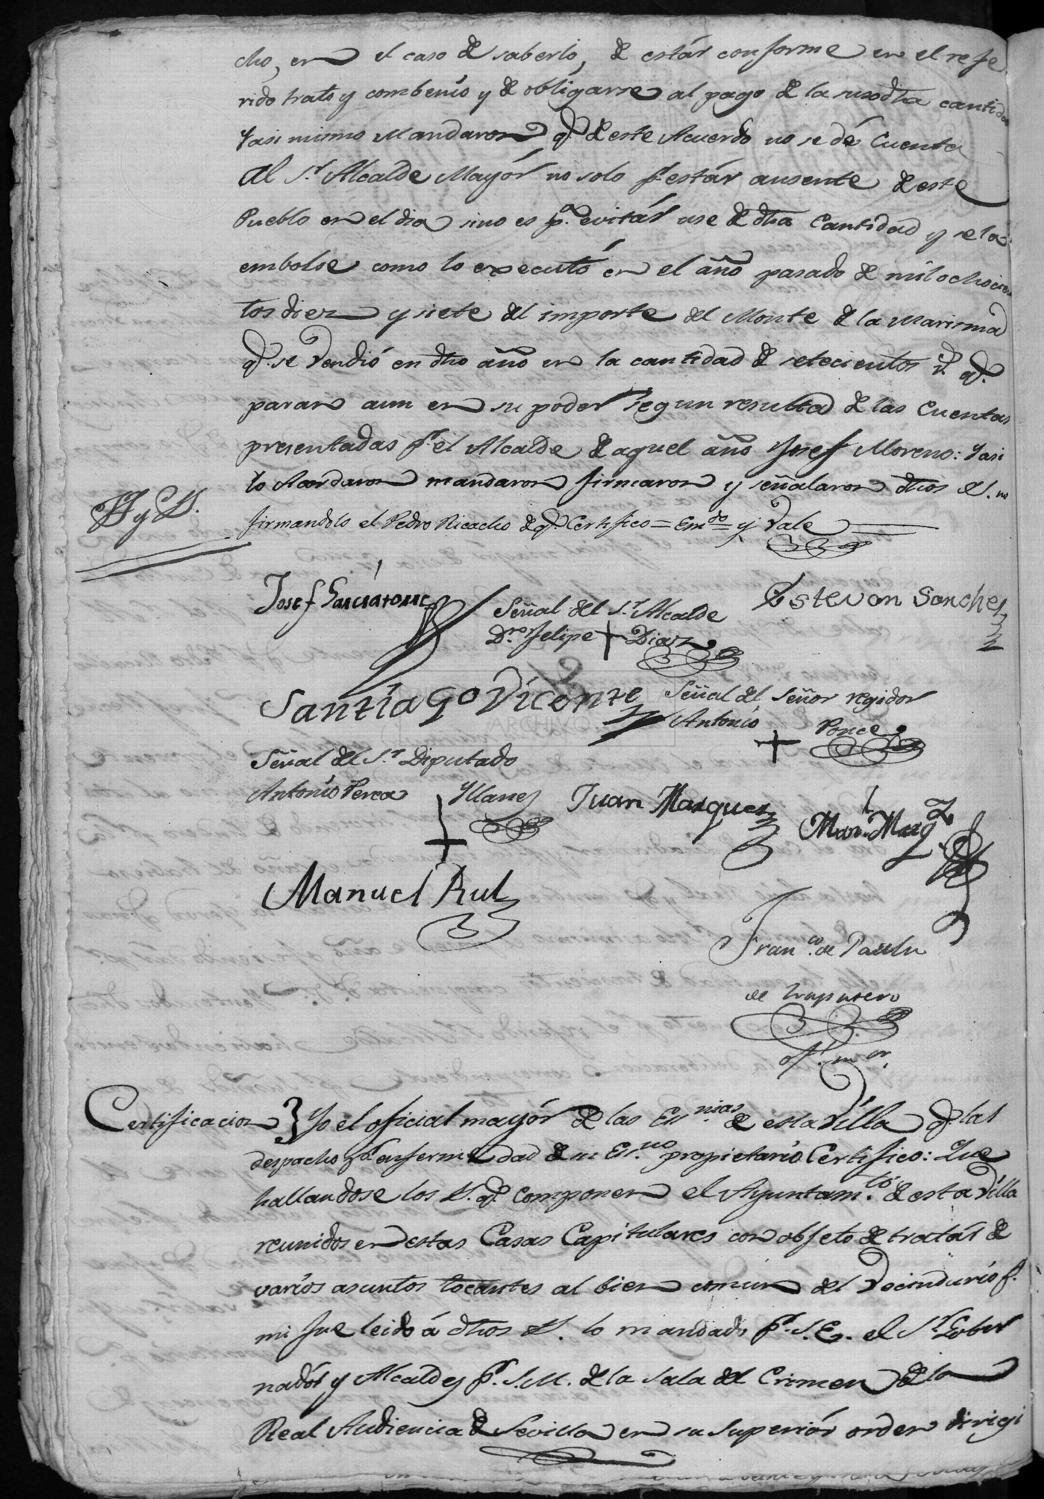 cho, en el caso de saberlo, de estár conforme en el refe
rido trato y combenio y de obligarse al pago de la susodha cantida
Yasi mismo Mandaron q.e de este Acuerdo no se dé Cuenta
Al S.r Alcalde Mayór no solo p.r estár ausente de este
Pueblo en el dia sino es p.a evitár use de dha Cantidad y se la
embolse como lo executó en el año pasado de mil ochocien
tos diez y siete del importe del Monte de la Marisma
q.e se Vendió en dho año en la cantidad de setecientos r.s q.e
paran aun en su poder segun resulta de las Cuentas
presentadas p.r el Alcalde de aquel año Josef Moreno: Yasi
lo Acordaron mandaron firmaron y señalaron dhos S.s no
firmandolo el Pedro Ricacho de q.e Certifico = Em.do = y = Vale
Josef Garciatorre
Señal del S.r Alcalde
D.n Felipe + Diaz
Estevan Sanchez
Santiago Vicente
Señal del Señor regidor
Antonio + Ponce
Señal del S.r Diputado
Antonio Perea + Yllanes
Juan Marquez
Man.l Marq.z
Manuel Rul
Fran.co de Paula
de Trapatero
of.l m.or
Certificacion } Yo el oficial mayór de las Es.nias de esta Villa q.e las
despacho p.r enfermedad de su Es.no propietario Certifico: Que
hallandose los S.s q.e componen el Ayuntam.to de esta Villa
reunidos en estas Casas Capitulares con objeto de tratár de
varios asuntos tocantes al bien comun del Vecindario p.r
mi fue leido á dhos S.s lo mandado p.r S.E. el S.r Gober
nadór y Alcaldes p.r S.M. de la Sala del Crimen de la
Real Audiencia de Sevilla en su Superiór orden dirigi